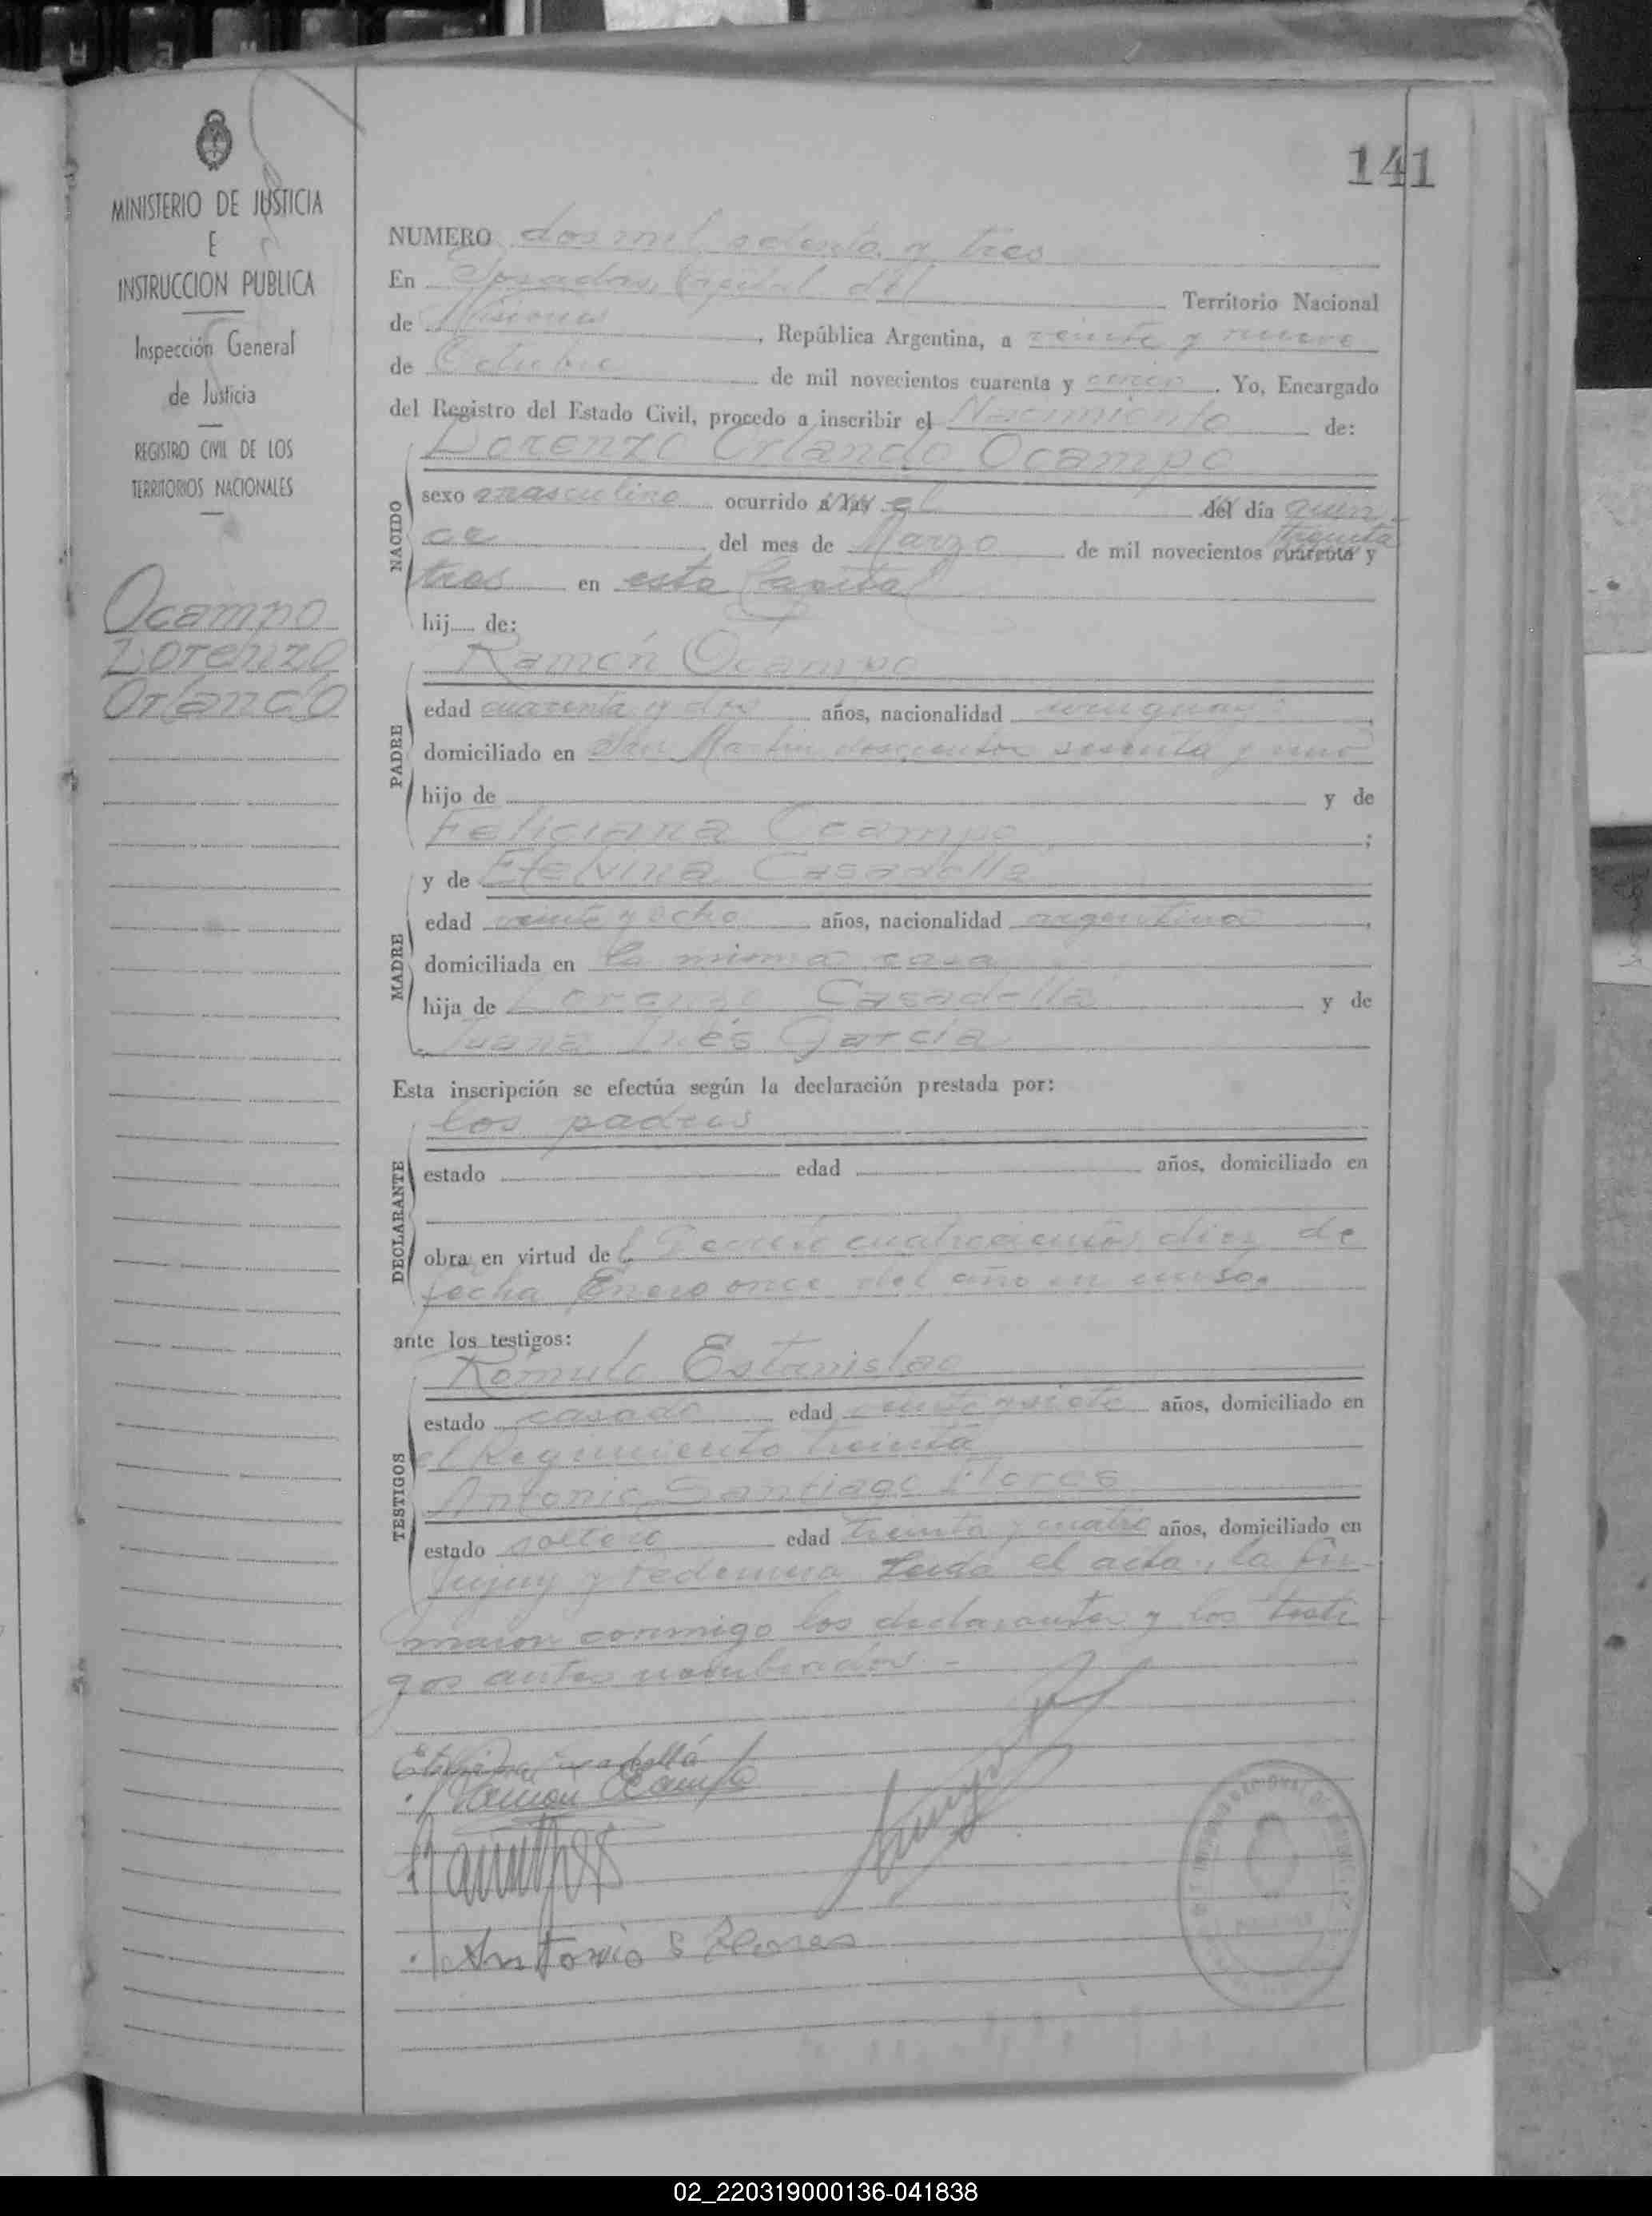 141
MINISTERIO DE JUSTICIA
E
INSTRUCCION PUBLICA
Inspección General
de Justicia
REGISTRO CIVIL DE LOS
TERRITORIOS NACIONALES
Ocampo
Lorenzo
Orlando
NUMERO dos mil setenta y tres
En Posadas, Capital del Territorio Nacional
de Misiones, República Argentina, a veinte y nueve
de Octubre de mil novecientos cuarenta y cinco. Yo, Encargado
del Registro del Estado Civil, procedo a inscribir el Nacimiento de:
Lorenzo Orlando Ocampo
NACIDO
sexo masculino ocurrido a las el del día quin-
ce del mes de Marzo de mil novecientos cuarenta treinta y
tres en esta Capital
hij de:
PADRE
Ramón Ocampo
edad cuarenta y dos años, nacionalidad uruguay
domiciliado en San Martin doscientos sesenta y uno
hijo de y de
Feliciana Ocampo;
MADRE
y de Etelvina Casadellá
edad veinte y ocho años, nacionalidad argentina,
domiciliada en la misma casa
hija de Lorenzo Casadellá y de
Juana Inés García
Esta inscripción se efectúa según la declaración prestada por:
DECLARANTE
los padres
estado edad años, domiciliado en
obra en virtud del Decreto cuatrocientos diez de
fecha Enero once del año en curso.
ante los testigos:
TESTIGOS
Rómulo Estanislao
estado casado edad veinte y siete años, domiciliado en
el Regimiento treinta
Antonio Santiago Flores
estado soltero edad treinta y cuatro años, domiciliado en
Jujuy y Leida el acta, la fir-
maron conmigo los declarantes y los testi
gos antes nombrados.-
Etelvina Casadellá
Ramón Ocampo
Antonio S Flores
02_220319000136-041838